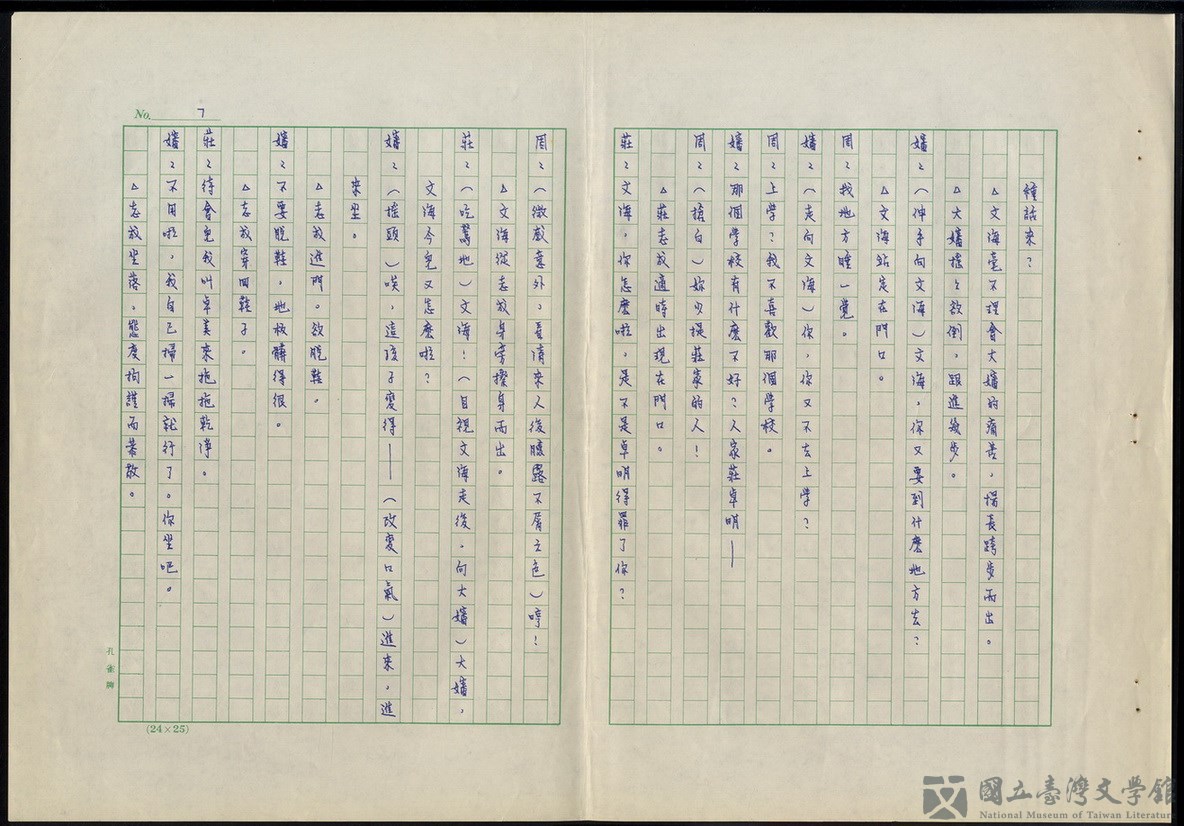 種話來？
△文海毫不理會大嬸的痛苦，揚長跨步而出。
△大嬸搖搖欲倒，跟進幾步。
嬸：（伸手向文海）文海，你又要到什麼地方去？
△文海站定在門口。
周：找地方睡一覺。
嬸：（走向文海）你，你又不去上學？
周：上學？我不喜歡那個學校。
嬸：那個學校有什麼不好？人家莊卓明——
周：（搶白）妳少提莊家的人！
△莊志成適時出現在門口。
莊：文海，你怎麼啦，是不是卓明得罪了你？
No. 7
周：（微感意外，看清來人後臉露不屑之色）哼！
△文海從志成身旁擦身而出。
莊：（吃驚地）文海！（目視文海走後，向大嬸）大嬸，
文海今兒又怎麼啦？
嬸：（搖頭）唉，這孩子變得——（改變口氣）進來，進
來坐。
△志成進門。欲脫鞋。
嬸：不要脫鞋，地板髒得很。
△志成穿回鞋子。
莊：待會兒我叫卓美來拖拖乾淨。
嬸：不用啦，我自己掃一掃就行了。你坐吧。
△志成坐落，態度拘謹而萎散。
孔雀牌
(24×25)
國立臺灣文學館
National Museum of Taiwan Literature